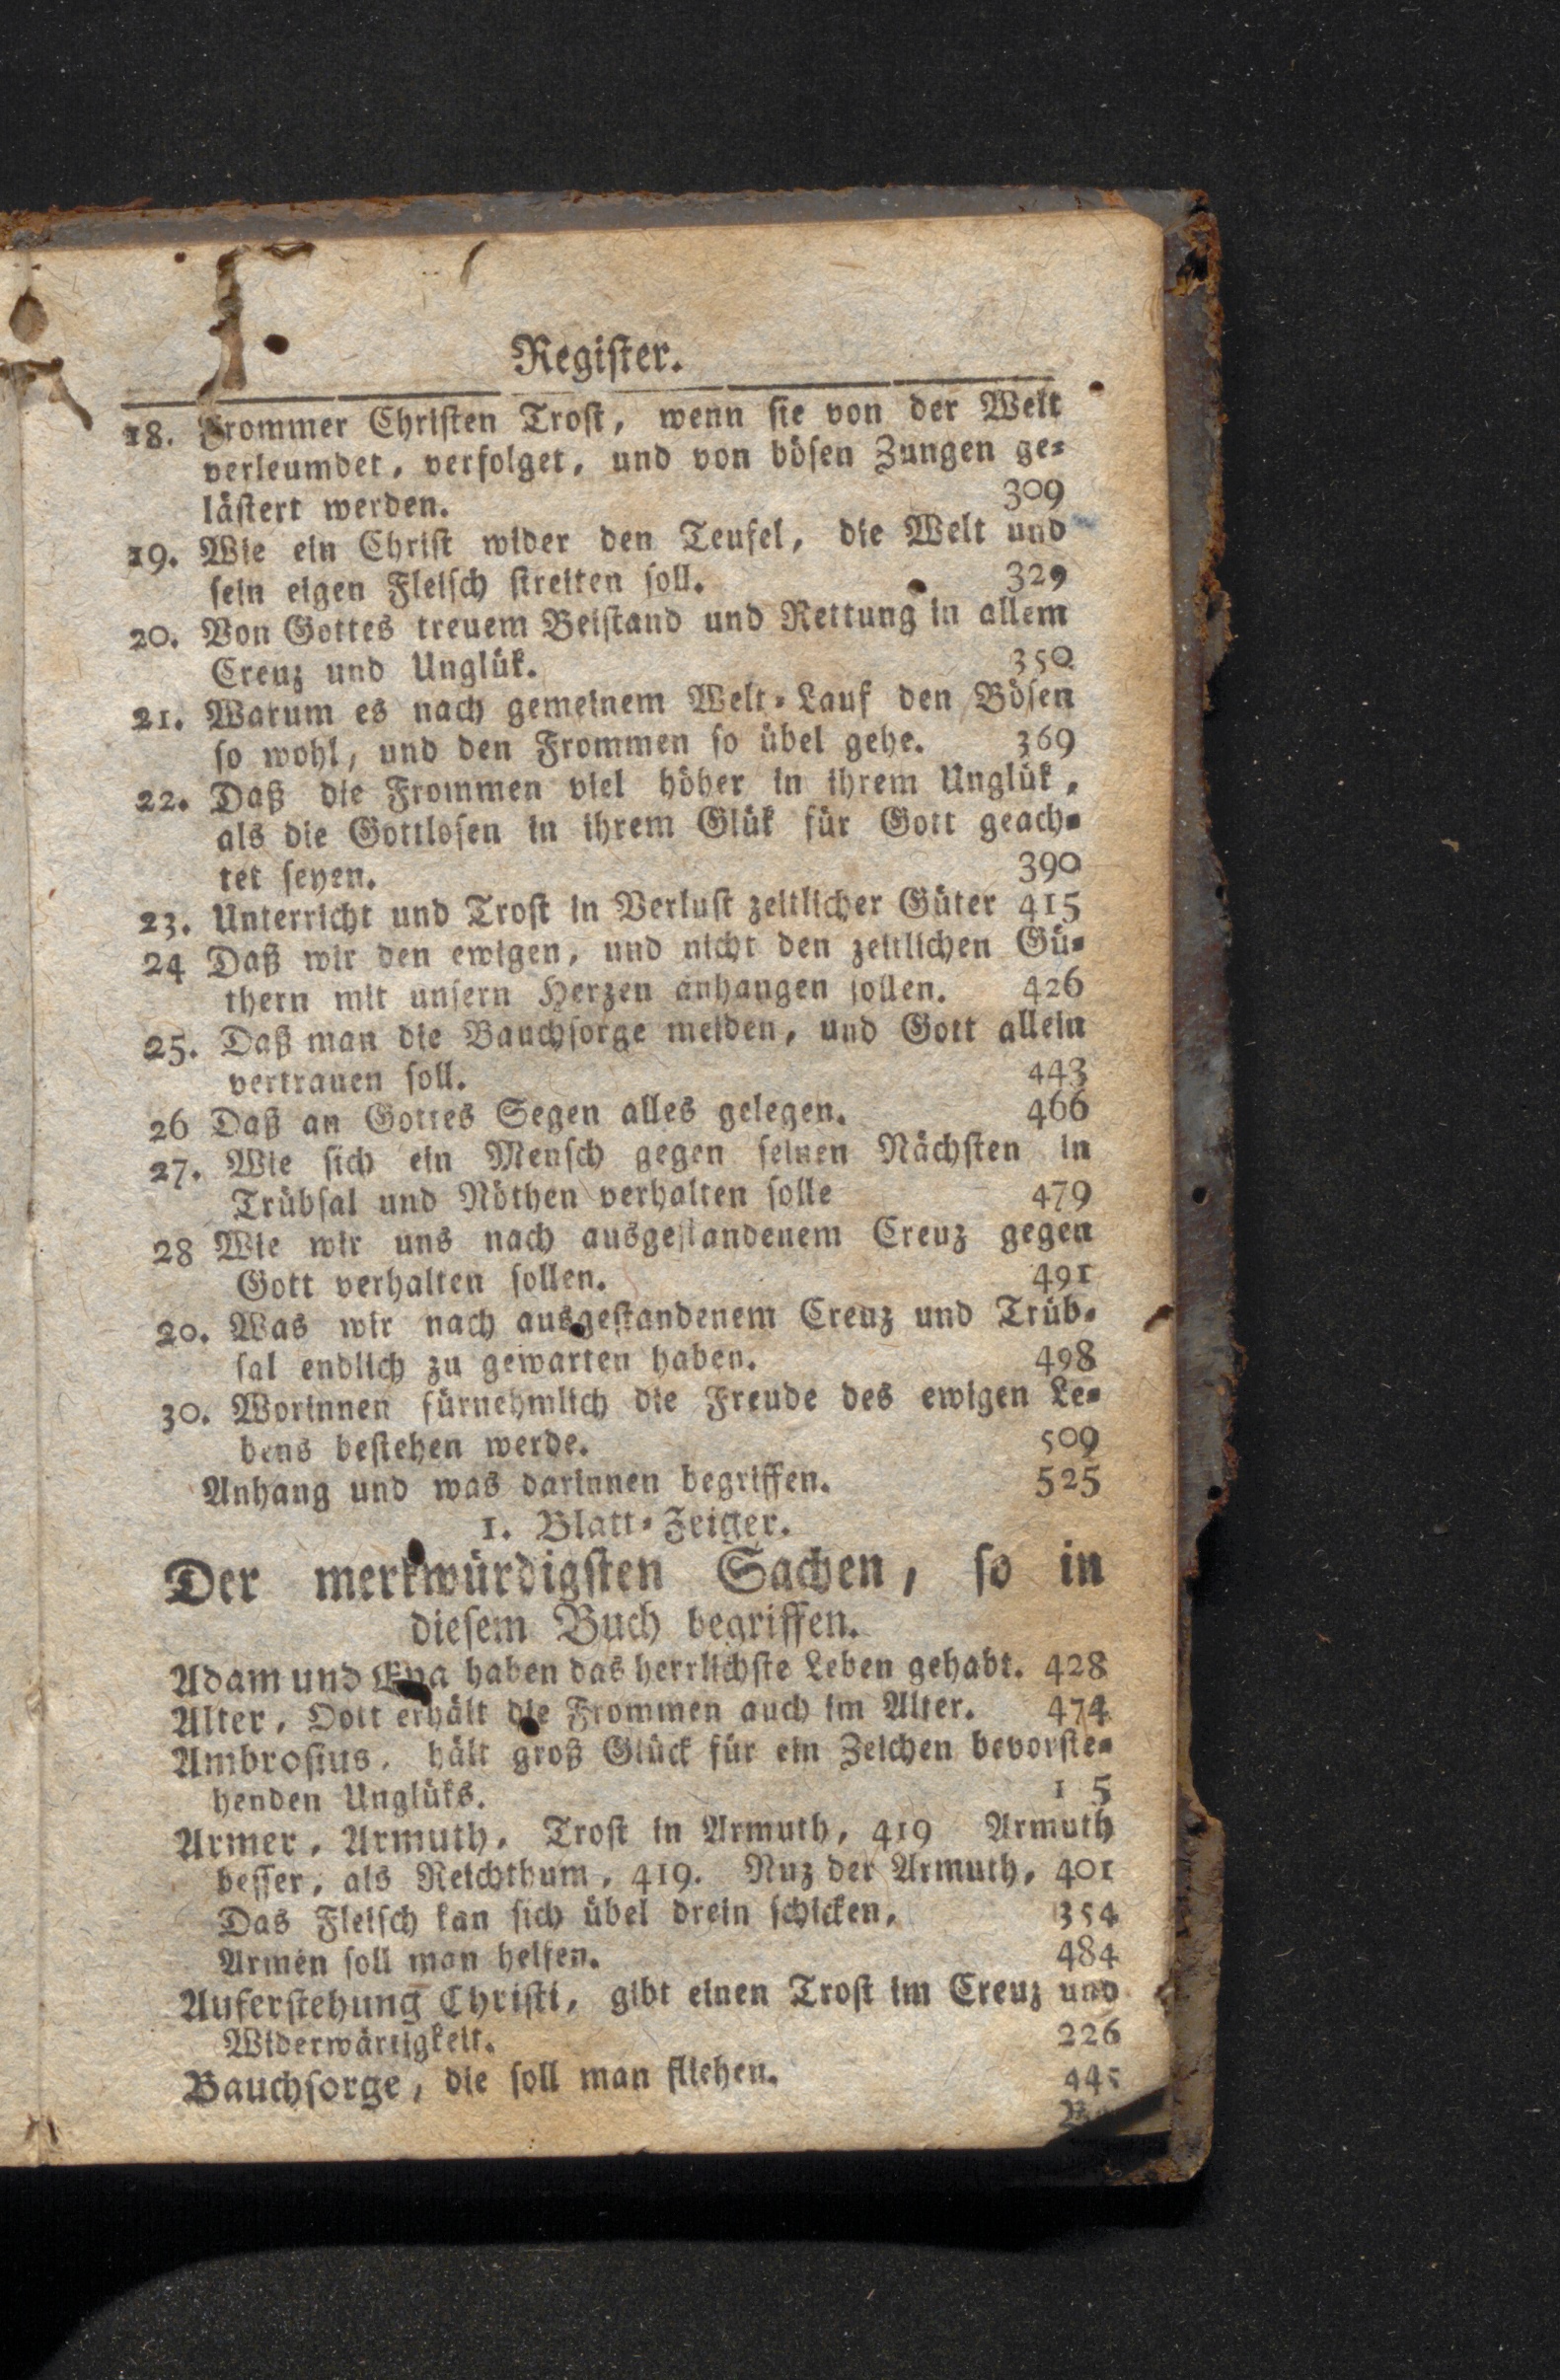 Register.
18. Frommer Christen Trost, wenn sie von der Welt
verleumdet, verfolget, und von bösen Zungen ge-
lästert werden. 309
19. Wie ein Christ wider den Teufel, die Welt und
sein eigen Fleisch streiten soll. 329
20. Von Gottes treuem Beistand und Rettung in allem
Creuz und Unglük. 350
21. Warum es nach gemeinem Welt-Lauf den Bösen
so wohl, und den Frommen so übel gehe. 369
22. Daß die Frommen viel höher in ihrem Unglük,
als die Gottlosen in ihrem Glük für Gott geach-
tet seyen. 390
23. Unterricht und Trost in Verlust zeitlicher Güter 415
24 Daß wir den ewigen, und nicht den zeitlichen Gü-
thern mit unsern Herzen anhangen sollen. 426
25. Daß man die Bauchsorge meiden, und Gott allein
vertrauen soll. 443
26 Daß an Gottes Segen alles gelegen. 466
27. Wie sich ein Mensch gegen seinen Nächsten in
Trübsal und Nöthen verhalten solle 479
28 Wie wir uns nach ausgestandenem Creuz gegen
Gott verhalten sollen. 491
20. Was wir nach ausgestandenem Creuz und Trüb-
sal endlich zu gewarten haben. 498
30. Worinnen fürnehmlich die Freude des ewigen Le-
bens bestehen werde. 509
Anhang und was darinnen begriffen. 525
1. Blatt-Zeiger.
Der merkwürdigsten Sachen, so in
diesem Buch begriffen.
Adam und Eva haben das herrlichste Leben gehabt. 428
Alter, Gott erhält die Frommen auch im Alter. 474
Ambrosius, hält groß Glück für ein Zeichen bevorste-
henden Unglüks. 1 5
Armer, Armuth, Trost in Armuth, 419 Armuth
besser, als Reichthum, 419. Nuz der Armuth, 401
Das Fleisch kan sich übel drein schicken, 354
Armen soll man helfen. 484
Auferstehung Christi, gibt einen Trost im Creuz und
Widerwärtigkeit. 226
Bauchsorge, die soll man fliehen. 445